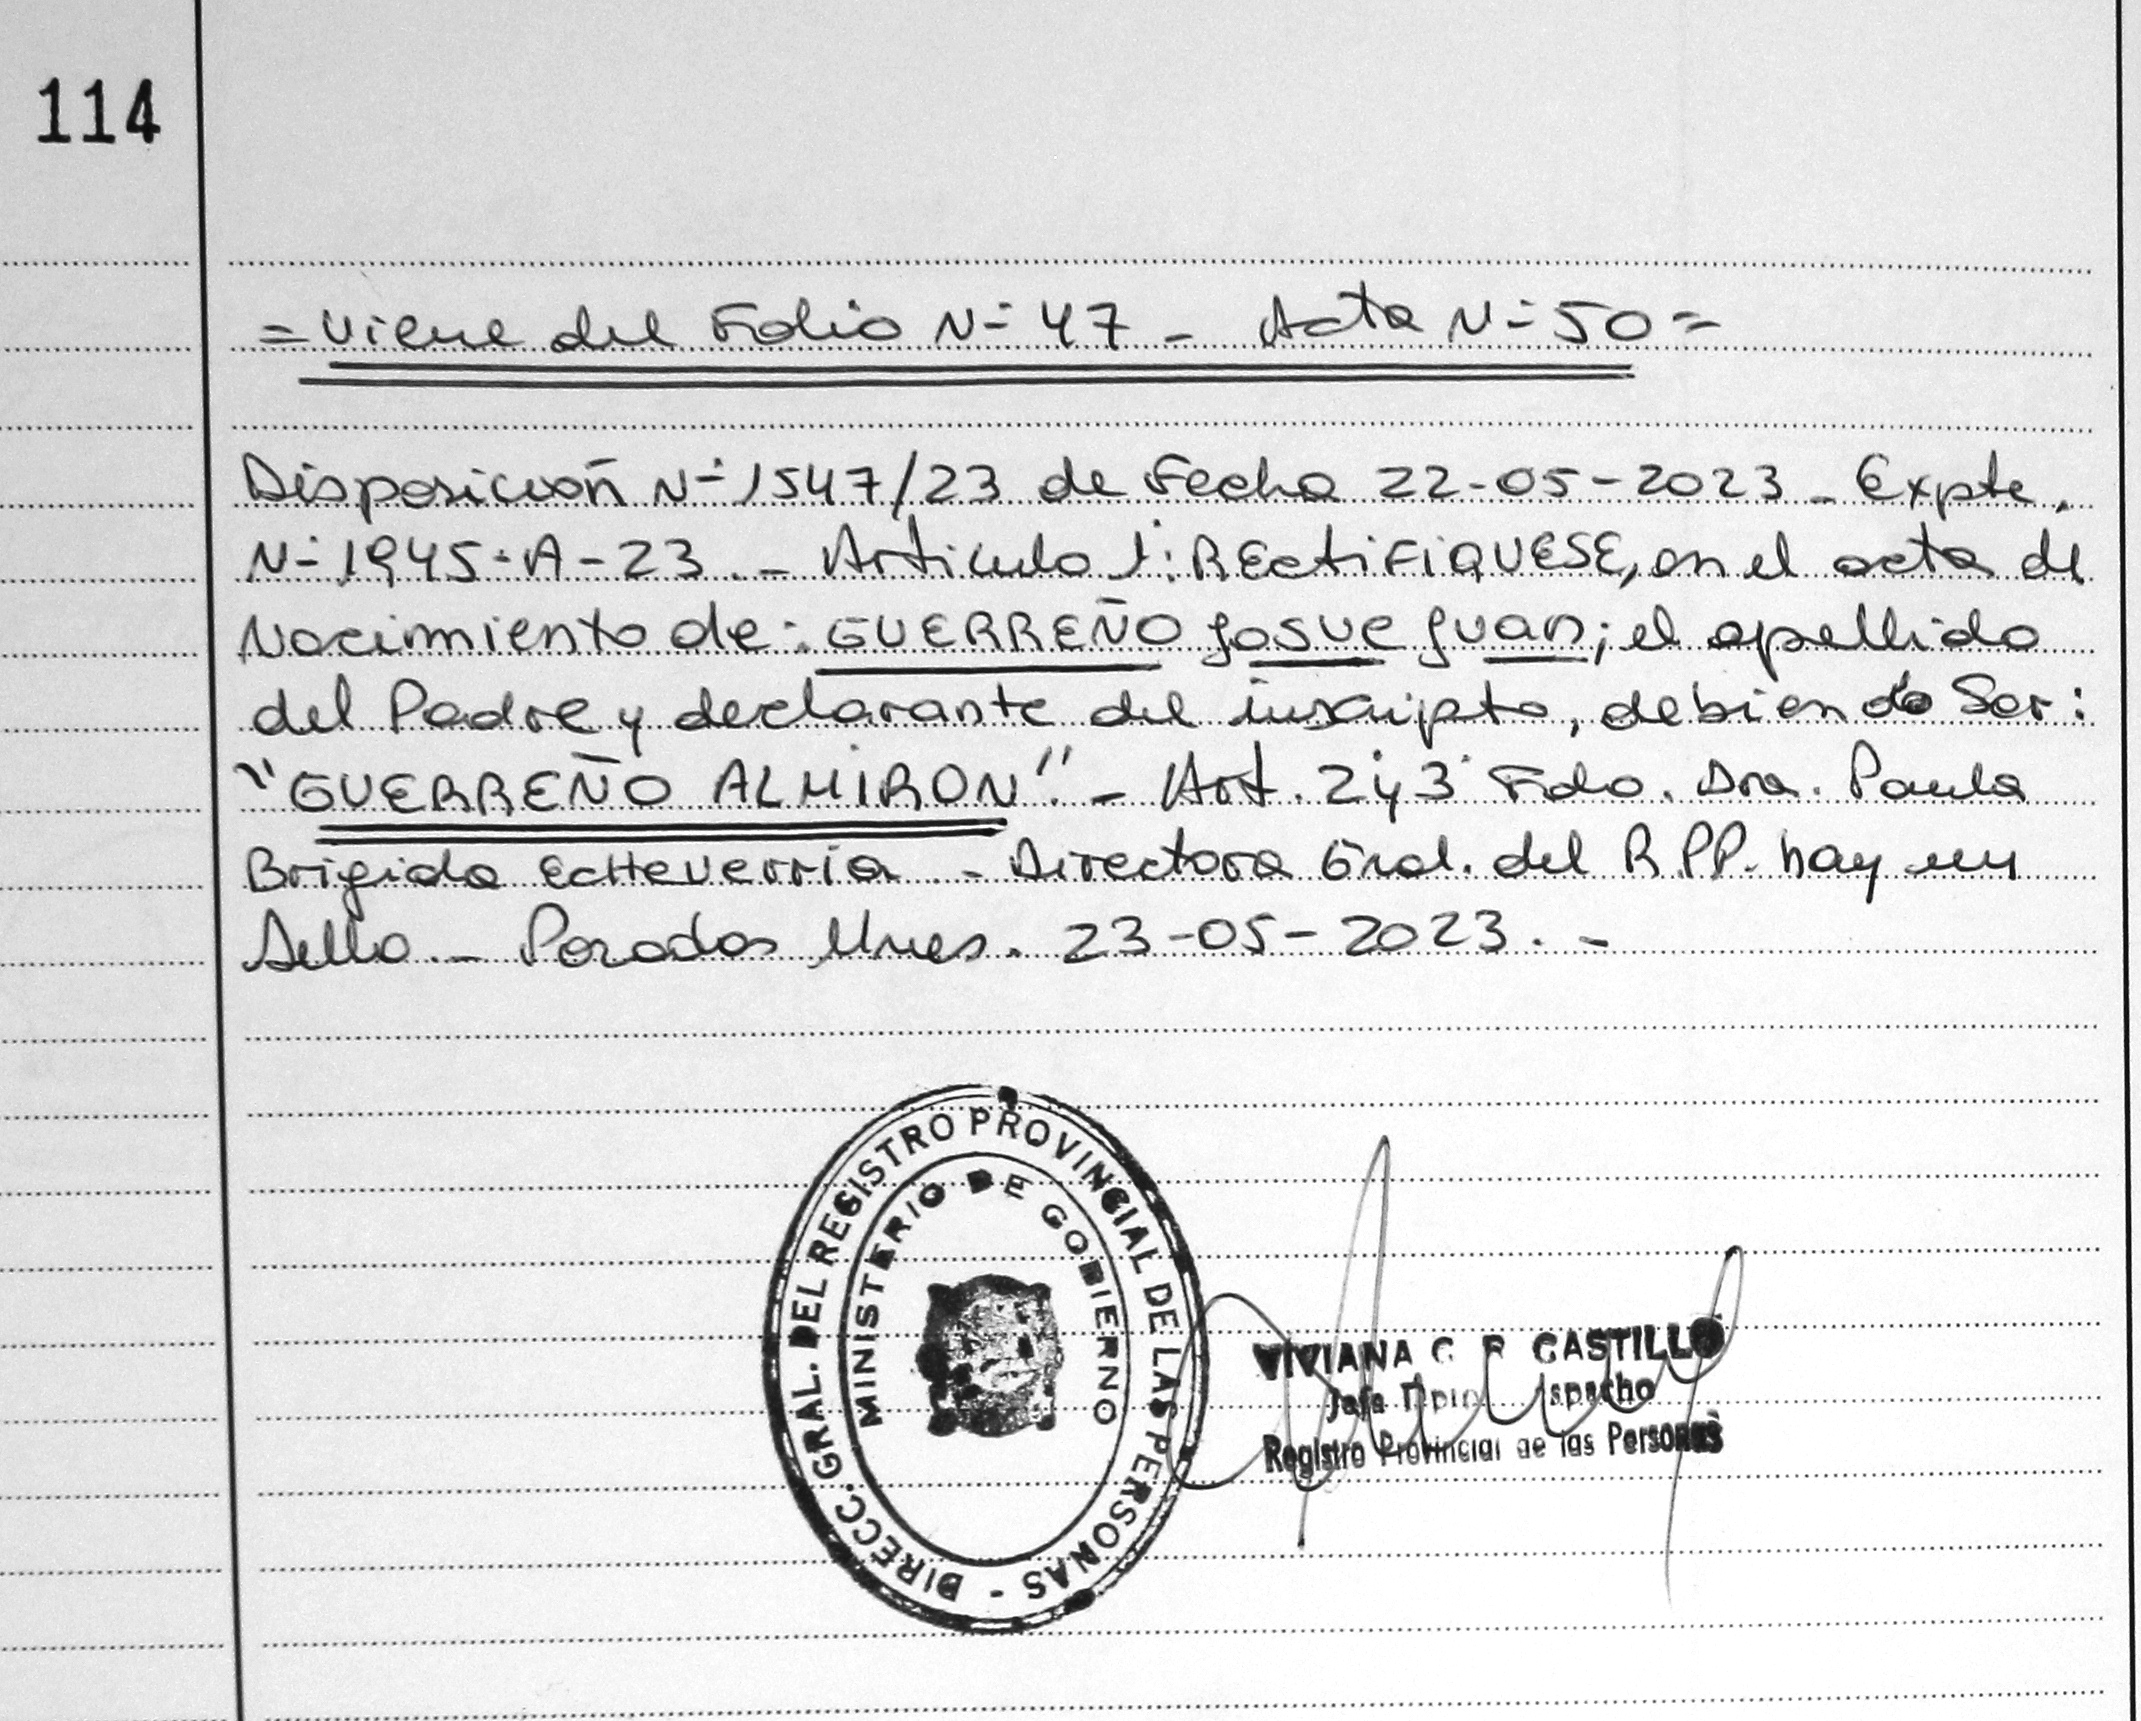 114
= Viene del Folio N- 47 - Acta N- 50 =
Disposición N- 1547/23 de Fecha 22-05-2023 - Expte.
N- 1945-A-23.- Articulo 1°: RECtiFIQUESE, en el acta de
Nacimiento de: GUERREÑO Josue Juan; el apellido
del Padre y declarante del inscripto, debiendo Ser:
"GUERREÑO ALMIRON" - Art. 2 y 3 Fdo. Dra. Paula
Brigida Echeverria - Directora Gral. del R.P.P. hay un
Sello.- Posadas Mnes. 23-05-2023.-
DIRECC. GRAL. DEL REGISTRO PROVINCIAL DE LAS PERSONAS -
MINISTERIO DE GOBIERNO
VIVIANA CASTILLO
Jefe
Registro Provincial de las Personas